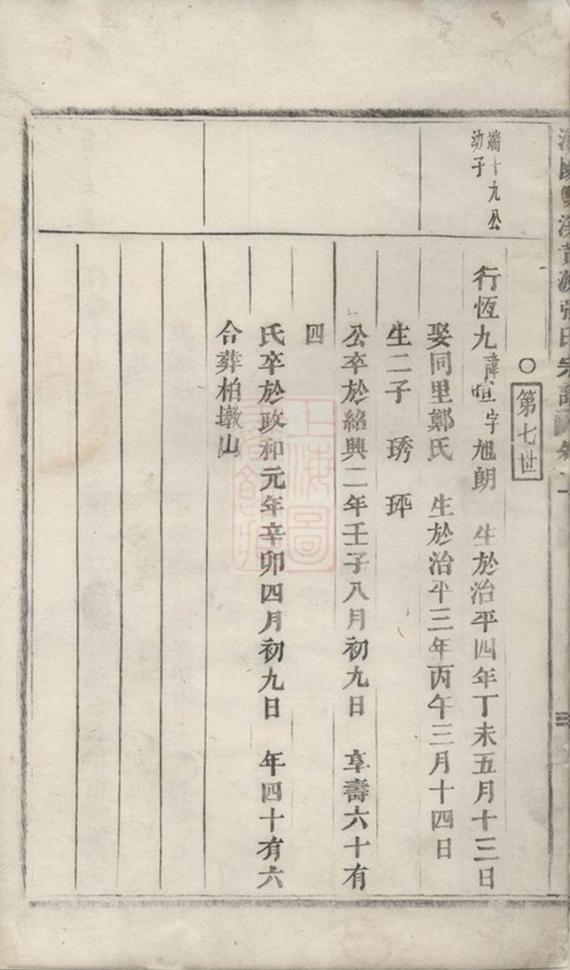 ○第七世
端十九公
幼子
行恆九 諱暄字旭朗 生於治平四年丁未五月十三日
娶同里鄭氏 生於治平三年丙午三月十四日
生二子 琇 玶
公卒於紹興二年壬子八月初九日 享壽六十有
四
氏卒於政和元年辛卯四月初九日 年四十有六
合葬柏墩山
上海圖